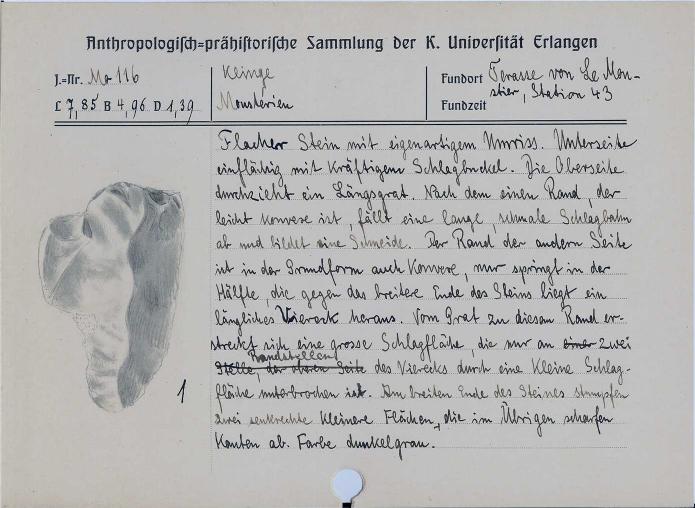 Anthropologisch=prähistorische Sammlung der K. Universität Erlangen
J.=Nr. Mo 116
Klinge
Fundort Terasse von Le Mou-
stier, Station 43
L 7,85 B 4,96 D 1,39
Mousterien
Fundzeit
Flacher Stein mit eigenartigem Umriss. Unterseite
einflächig mit kräftigem Schlagbuckel. Die Oberseite
durchzieht ein Längsgrat. Nach dem einen Rand, der
leicht konvex ist, fällt eine lange, schmale Schlagbahn
ab und bildet eine Schneide. Der Rand der andern Seite
ist in der Grundform auch konvex, nur springt in der
Hälfte, die gegen das breitere Ende des Steins liegt ein
längliches Viereck heraus. Vom Grat zu diesem Rand er-
streckt sich eine grosse Schlagfläche, die nur an einer zwei
Randstellen
Stelle, der oberen Seite des Vierecks durch eine kleine Schlag-
fläche unterbrochen ist. Am breiten Ende des Steines stumpfen
zwei senkrechte kleinere Flächen, die im Übrigen scharfen
Kanten ab. Farbe dunkelgrau.
1